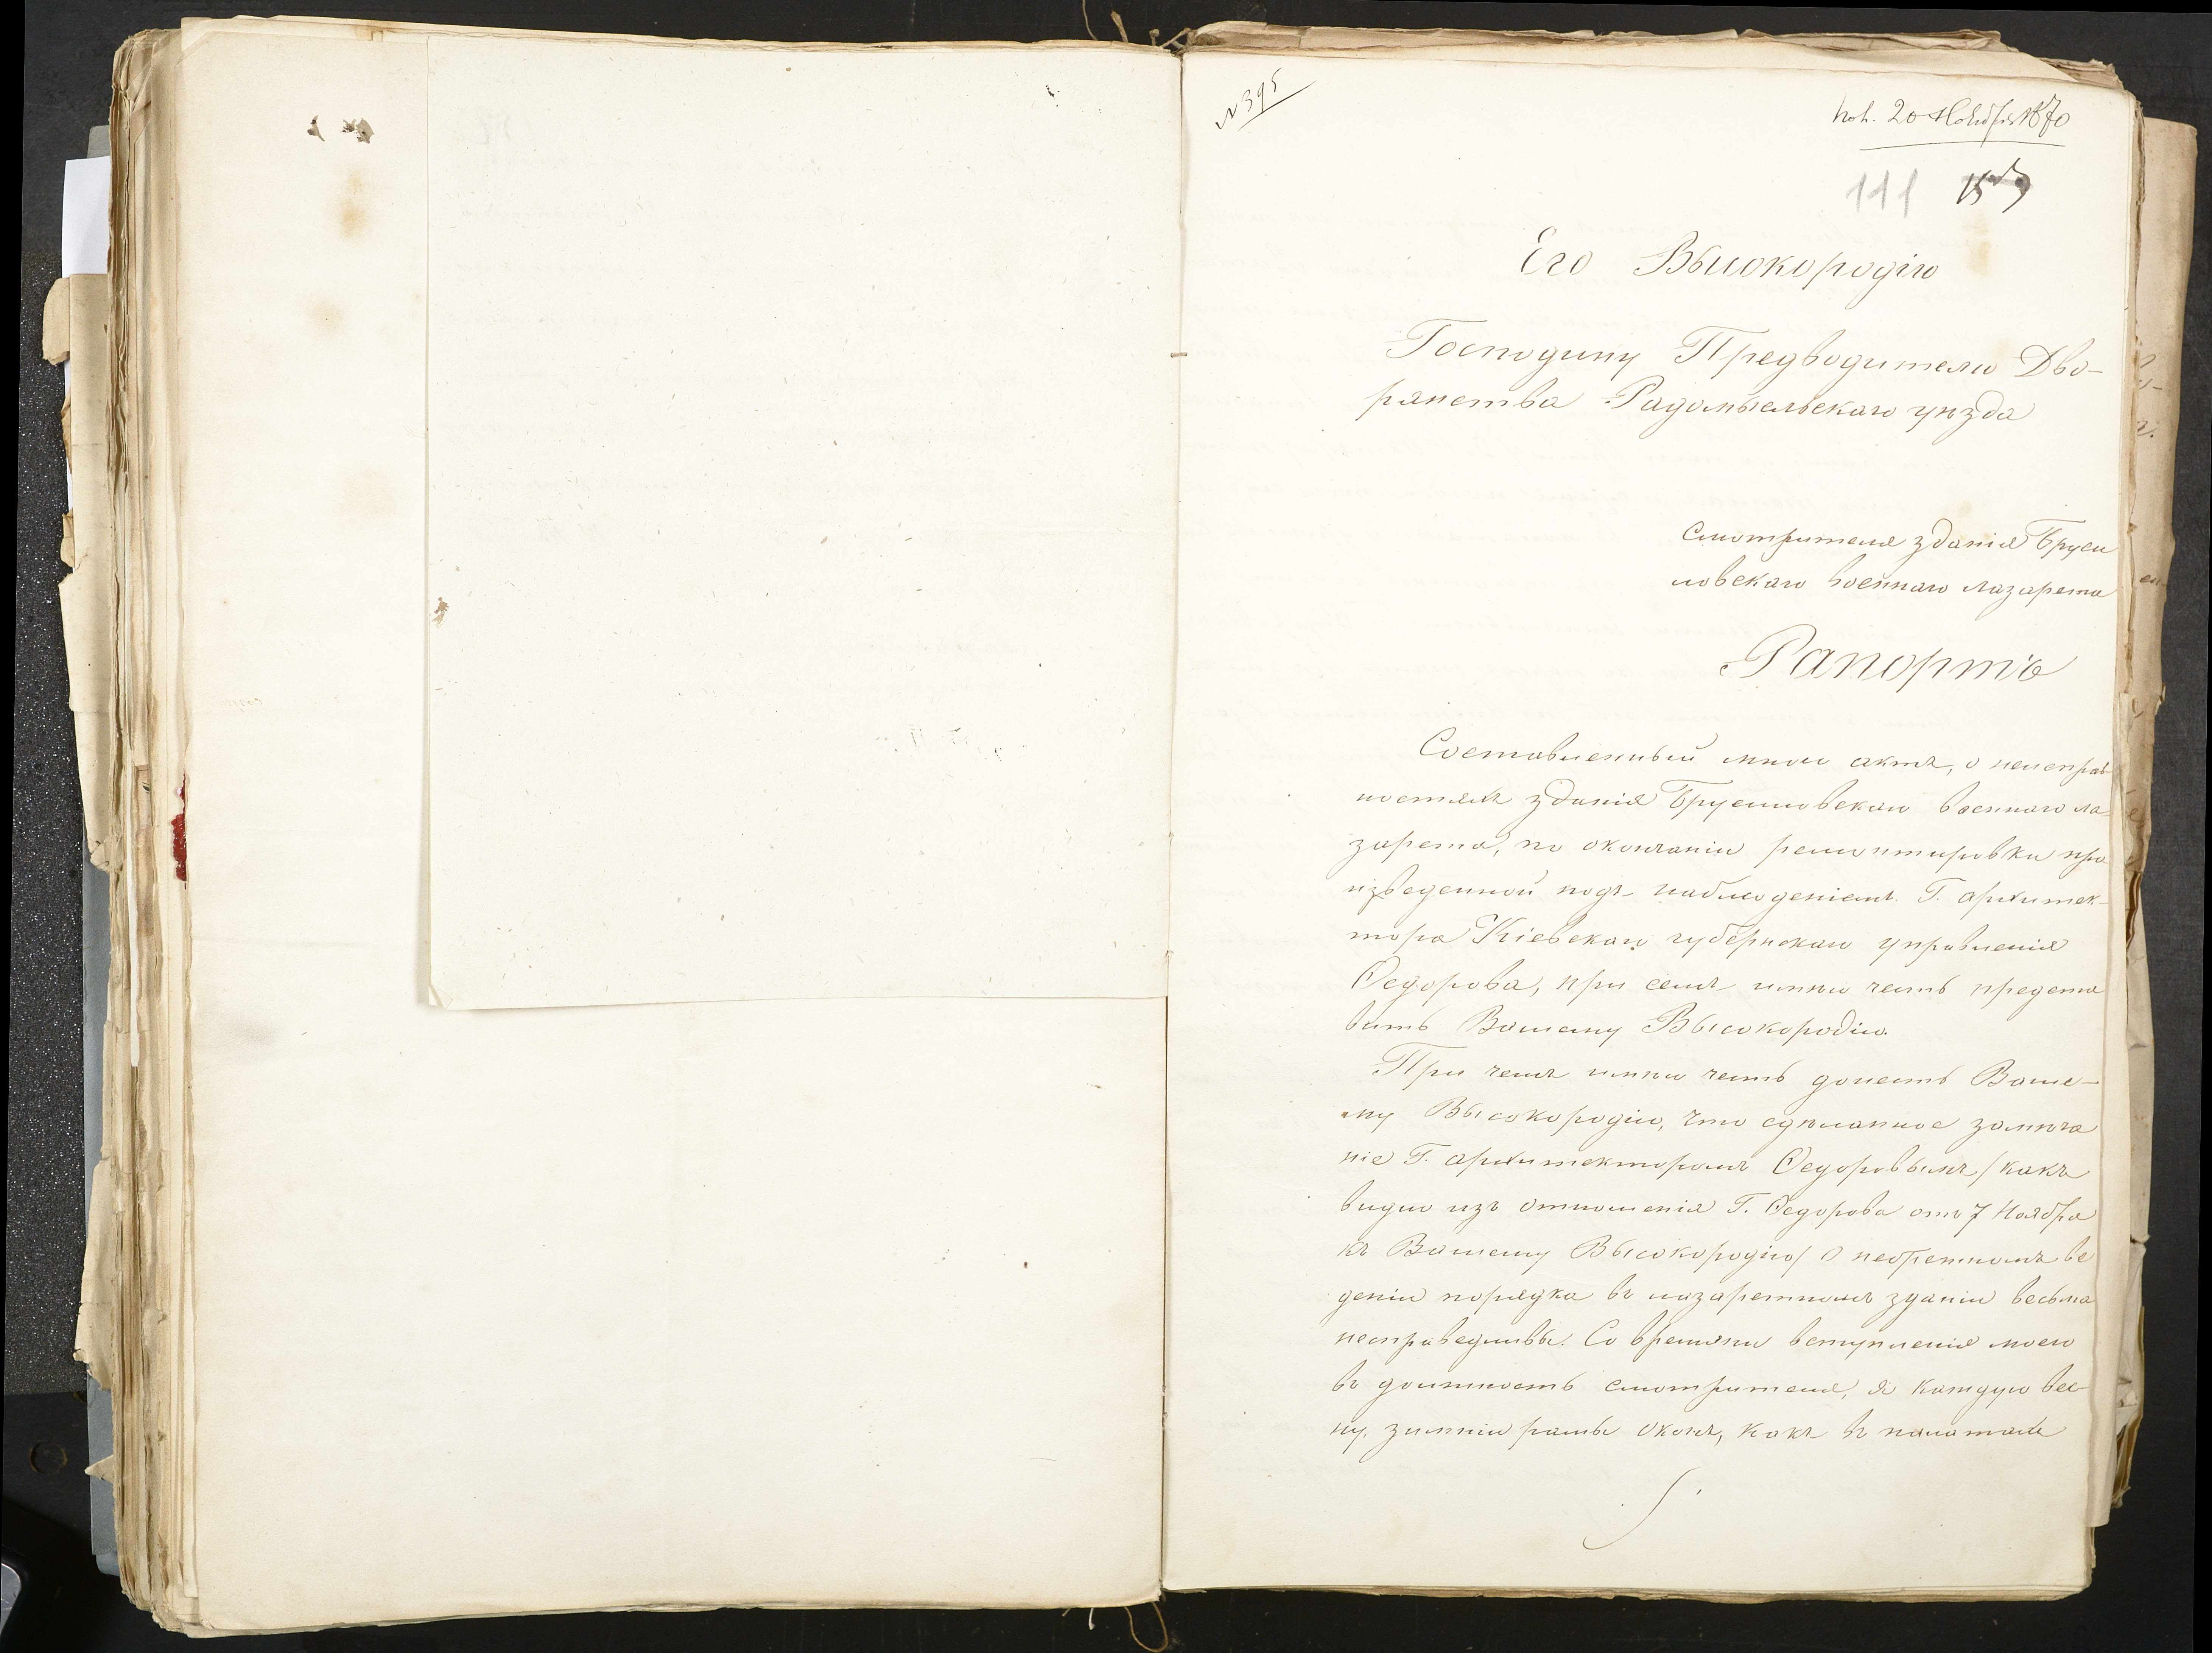 N 395
пол. 20 Ноября 1870
111 157
Его Высокородію
Господину Предводителю Дво-
рянства Радомысльскаго уѣзда
Смотрителя зданія Бруси
ловскаго военнаго лазарета
Рапортъ
Составленный мною актъ, о неисправ-
ностяхъ зданія Брусиловскаго военнаго ла-
зарета, по окончаніи ремонтировки про
изведенной подъ наблюденіемъ Г. архитек-
тора Кіевскаго губернскаго управленія
Ѳедорова, при семъ имѣю честь предста
вить Вашему Высокородію.
При чемъ имѣю честь донесть Ваше-
му Высокородію, что сдѣланное замѣча
ніе Г. архитекторомъ Ѳедоровымъ /какъ
видно изъ отношенія Г. Ѳедорова отъ 7 Ноября
къ Вашему Высокородію/ о небрежномъ ве
деніи порядка въ лазаретномъ зданіи весьма
несправедливы. Со времяни вступленія моего
въ должность смотрителя, я каждую вес-
ну, зимніи рамы оконъ, какъ въ палатахъ